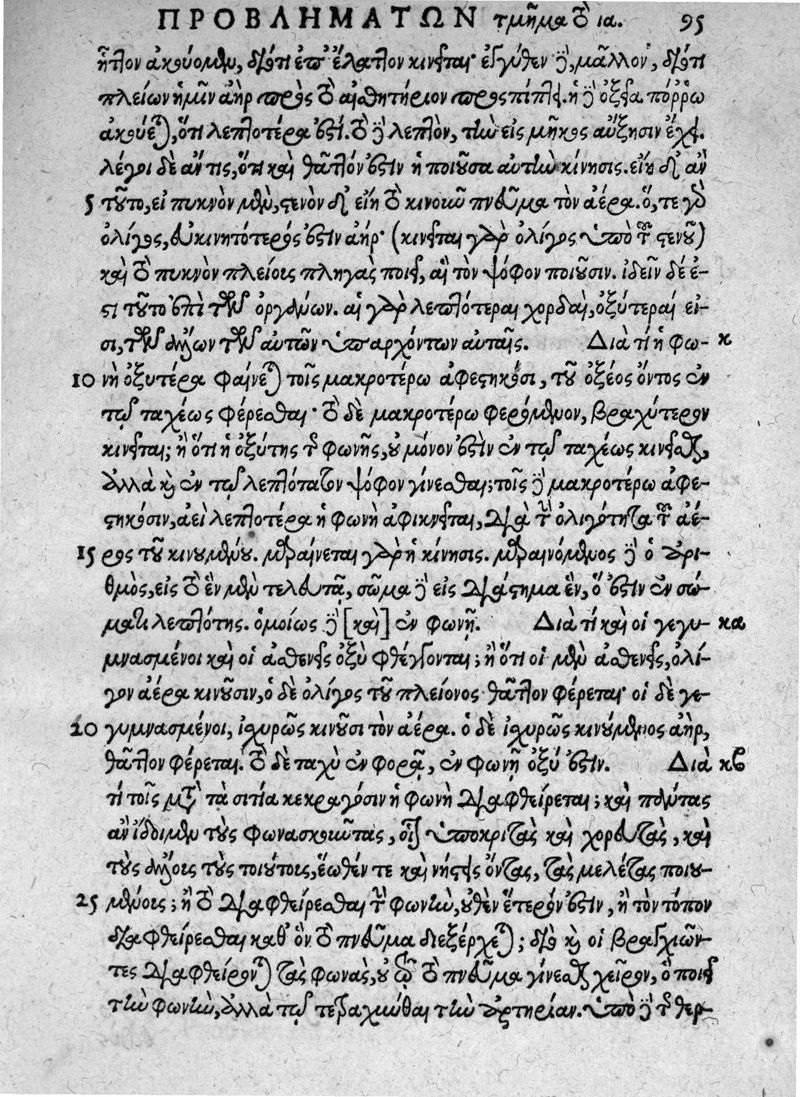 ΠΡΟΒΛΗΜΑΤΩΝ τμῆμα τὸ ια. 95
ἧττον ἀκούομεν, διότι ἐπ' ἔλαττον κινεῖται· ἐγγύθεν δὲ, μᾶλλον, διότι
πλείων ἡμῖν ἀὴρ πρὸς τὸ αἰσθητήριον προσπίπτει. ἡ δὲ ὀξεῖα πόρρω
ἀκούεται, ὅτι λεπτοτέρα ἐστί. τὸ δὲ λεπτὸν, τὴν εἰς μῆκος αὔξησιν ἔχει.
λέγοι δὲ ἄν τις, ὅτι καὶ θᾶττόν ἐστιν ἡ ποιοῦσα αὐτὴν κίνησις. εἴη δ' ἂν
5 τοῦτο, εἰ πυκνὸν μὲν, στενὸν δ' εἴη τὸ κινοῦν πνεῦμα τὸν ἀέρα. ὅ, τε γὸ
ὀλίγος, εὐκινητότερός ἐστιν ἀὴρ· (κινεῖται γὰρ ὀλίγος ὑπὸ τοῦ στενοῦ)
καὶ τὸ πυκνὸν πλείους πληγὰς ποιεῖ, αἳ τὸν ψόφον ποιοῦσιν. ἰδεῖν δέ ἔ-
στι τοῦτο ἐπὶ τῶν ὀργάνων. αἱ γὰρ λεπτότεραι χορδαὶ, ὀξύτεραί εἰ-
σι, τῶν ἄλλων τῶν αὐτῶν ὑπαρχόντων αὐταῖς. Διὰ τί ἡ φω- κ
10 νὴ ὀξυτέρα φαίνεται τοῖς μακροτέρω ἀφεστηκόσι, τοῦ ὀξέος ὄντος ἐν
τῷ ταχέως φέρεσθαι· τὸ δὲ μακροτέρω φερόμενον, βραχύτερον
κινεῖται; ἢ ὅτι ἡ ὀξύτης τῆς φωνῆς, οὐ μόνον ἐστὶν ἐν τῷ ταχέως κινεῖσθαι,
ἀλλὰ καὶ ἐν τῷ λεπτότατον ψόφον γίνεσθαι; τοῖς δὲ μακροτέρω ἀφε-
στηκόσιν, ἀεὶ λεπτοτέρα ἡ φωνὴ ἀφικνεῖται, διὰ τὴν ὀλιγότητα τοῦ ἀέ-
15 ρος τοῦ κινουμένου. μεταίνεται γὰρ ἡ κίνησις. μεταινόμενος δὲ ὁ ἀρι-
θμὸς, εἰς τὸ ἓν μὲν τελευτᾷ, σῶμα δὲ εἰς διάστημα ἓν, ὅ ἐστιν ἐν σώ-
ματι λεπτότης. ὁμοίως δὲ [καὶ] ἐν φωνῇ. Διὰ τί καὶ οἱ γεγυ- κα
μνασμένοι καὶ οἱ ἀσθενεῖς ὀξὺ φθέγγονται; ἢ ὅτι οἱ μὲν ἀσθενεῖς, ὀλί-
γον ἀέρα κινοῦσιν, ὁ δὲ ὀλίγος τοῦ πλείονος θᾶττον φέρεται· οἱ δὲ γε-
20 γυμνασμένοι, ἰσχυρῶς κινοῦσι τὸν ἀέρα. ὁ δὲ ἰσχυρῶς κινούμενος ἀὴρ,
θᾶττον φέρεται. τὸ δὲ ταχὺ ἐν φορᾷ, ἐν φωνῇ ὀξύ ἐστιν. Διὰ κβ
τί τοῖς μετὰ τὰ σιτία κεκραγόσιν ἡ φωνὴ διαφθείρεται; καὶ πάντας
ἂν ἴδοιμεν τοὺς φωνασκοῦντας, οἷον ὑποκριτὰς καὶ χορευτὰς, καὶ
τοὺς ἄλλους τοὺς τοιούτους, ἕωθέν τε καὶ νήστεις ὄντας, τὰς μελέτας ποιου-
25 μένους; ἢ τὸ διαφθείρεσθαι τὴν φωνὴν, οὐθὲν ἕτερόν ἐστιν, ἢ τὸν τόπον
διαφθείρεσθαι καθ' ὃν τὸ πνεῦμα διεξέρχεται; διὸ καὶ οἱ βραγχιῶν-
τες διαφθείρονται τὰς φωνὰς, οὐ τῷ τὸ πνεῦμα γίνεσθαι χεῖρον, ὃ ποιεῖ
τὴν φωνὴν, ἀλλὰ τῷ τετραχύνθαι τὴν ἀρτηρίαν. ὑπὸ δὲ τῆς θερ-